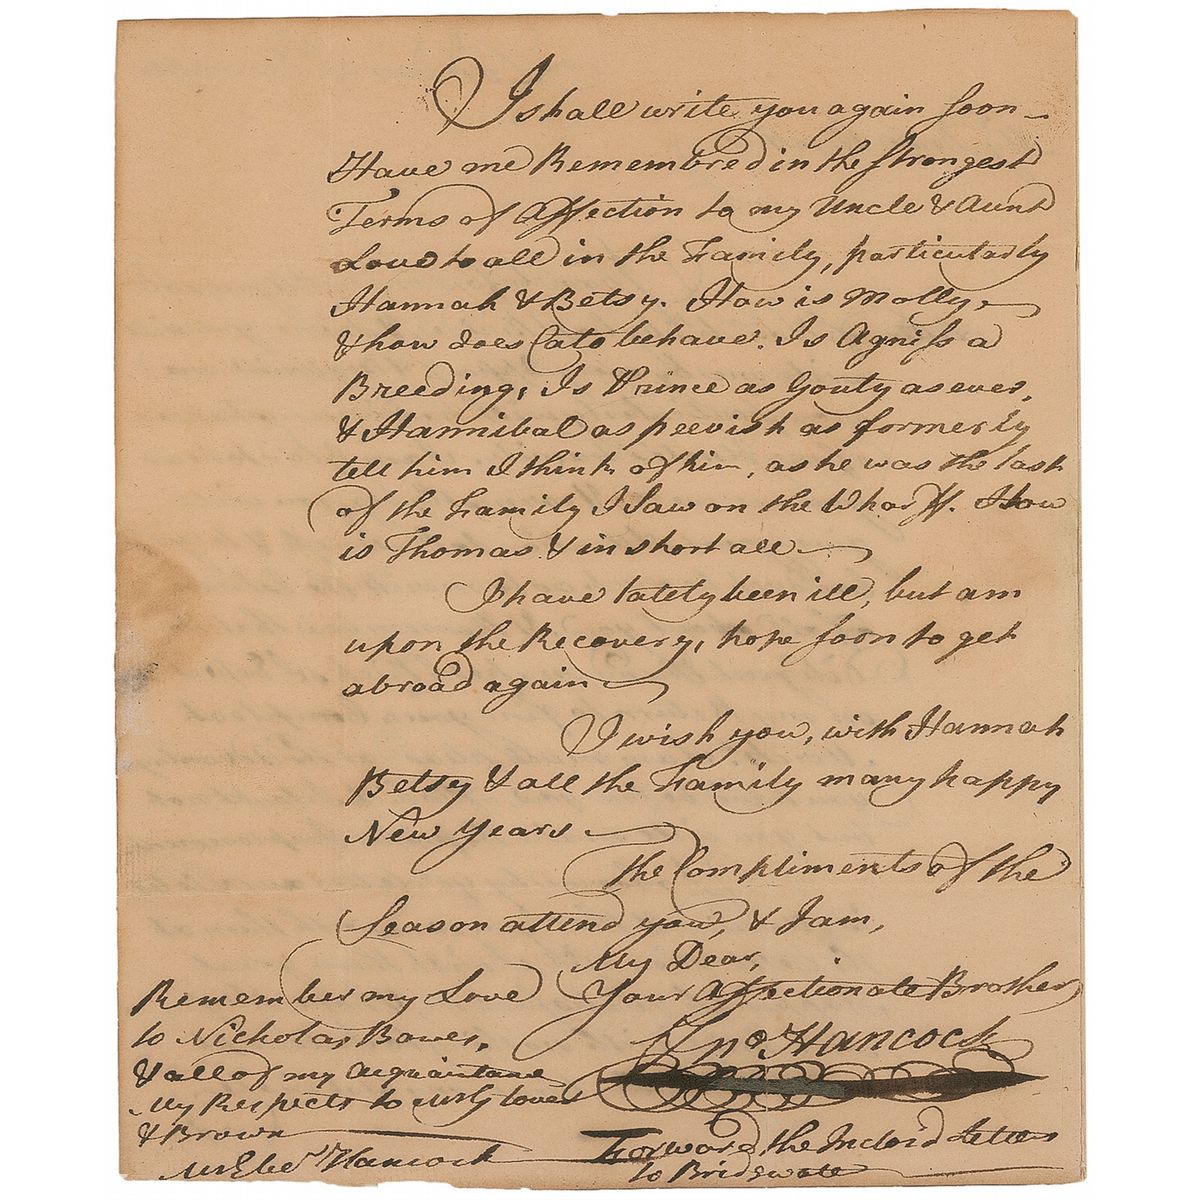 I shall write you again soon
Have me Remembred in the strongest
Terms of Affection to my Uncle & Aunt
Love to all in the Family, particularly
Hannah & Betsy. How is Molly,
& how does Cato behave. Is Agniss a
Breeding, Is Prince as Gouty as ever,
& Hannibal as peevish as formerly
tell him I think of him, as he was the last
of the Family I saw on the Wharff. How
is Thomas & in short all
I have lately been ill, but am
upon the Recovery, hope soon to get
abroad again
I wish you, with Hannah
Betsy & all the Family many happy
New Years
The Compliments of the
Season attend you, & I am,
My Dear,
Your Affectionate Brother
Jno. Hancock
Remember my Love
to Nicholas Bower,
& all of my Acquaintance
My Respects to Mrs Glover
& Brown
Mr Eber. Hancock
Forward the Inclos'd Letter
to Bridgwater